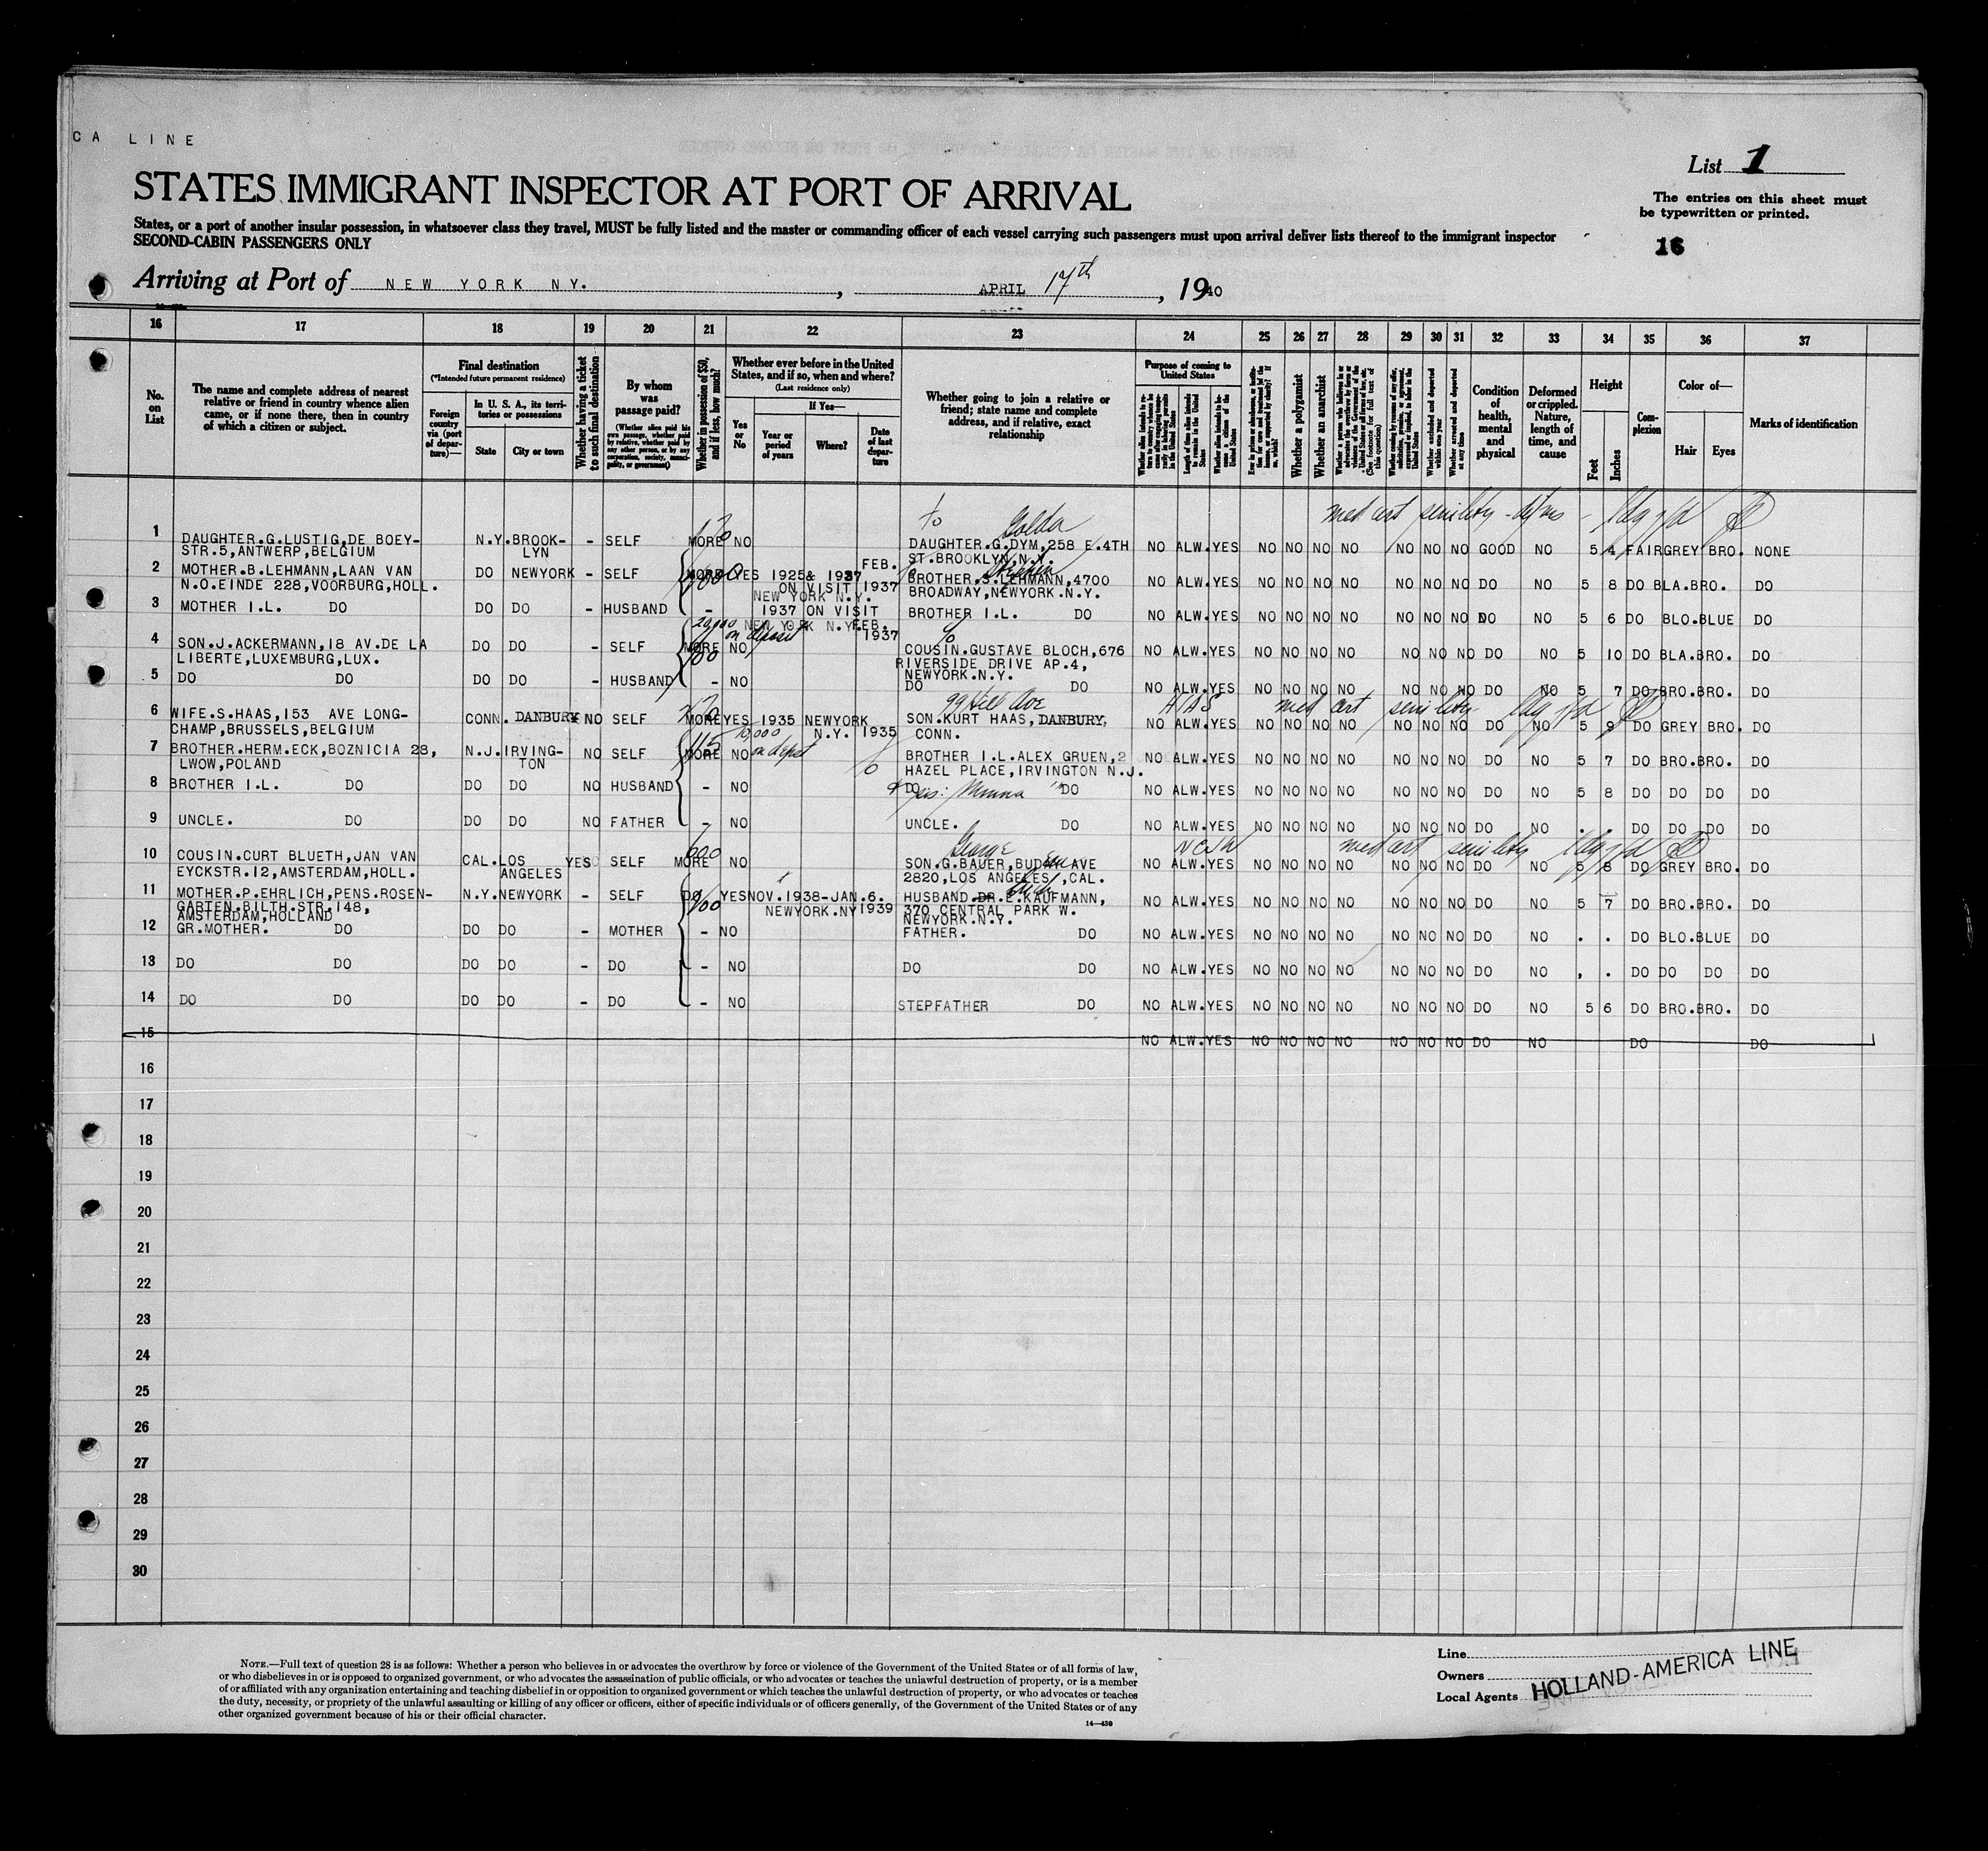 CA LINE
List 1
STATES IMMIGRANT INSPECTOR AT PORT OF ARRIVAL
The entries on this sheet must
be typewritten or printed.
States, or a port of another insular possession, in whatsoever class they travel, MUST be fully listed and the master or commanding officer of each vessel carrying such passengers must upon arrival deliver lists thereof to the immigrant inspector
SECOND-CABIN PASSENGERS ONLY
16
Arriving at Port of NEW YORK NY. , APRIL 17th , 1940
16 17 18 19 20 21 22 23 24 25 26 27 28 29 30 31 32 33 34 35 36 37
No. on List
The name and complete address of nearest
relative or friend in country whence alien
came, or if none there, then in country
of which a citizen or subject.
Final destination
(*Intended future permanent residence)
Foreign country via (port of departure)—
In U. S. A., its territories or possessions
State
City or town
Whether having a ticket to such final destination
By whom was passage paid?
(Whether alien paid his own passage, whether paid by relative, whether paid by any other person, or by any corporation, society, municipality, or government)
Whether in possession of $50, and if less, how much?
Whether ever before in the United States, and if so, when and where?
(Last residence only)
Yes or No
If Yes—
Year or period of years
Where?
Date of last departure
Whether going to join a relative or
friend; state name and complete
address, and if relative, exact
relationship
Purpose of coming to United States
Whether a polygamist
Whether an anarchist
Whether arrested and deported at any time
Condition of health, mental and physical
Deformed or crippled. Nature, length of time, and cause
Height
Feet
Inches
Complexion
Color of—
Hair
Eyes
Marks of identification
to Golda
med cert senility
1 DAUGHTER.G.LUSTIG,DE BOEY- N.Y. BROOK- - SELF MORE NO DAUGHTER.G.DYM,258 E.4TH NO ALW. YES NO NO NO NO NO NO NO GOOD NO 5 4 FAIR GREY BRO. NONE
STR.5,ANTWERP,BELGIUM LYN ST.BROOKLYN,N.Y.
2 MOTHER.B.LEHMANN,LAAN VAN DO NEWYORK - SELF MORE YES 1925& 1937 FEB. BROTHER.S.LEHMANN,4700 NO ALW. YES NO NO NO NO NO NO NO DO NO 5 8 DO BLA.BRO. DO
N.O.EINDE 228,VOORBURG,HOLL. ON VISIT 1937 BROADWAY,NEWYORK.N.Y.
NEW YORK N.Y.
3 MOTHER I.L. DO DO DO - HUSBAND - 1937 ON VISIT BROTHER I.L. DO NO ALW. YES NO NO NO NO NO NO NO DO NO 5 6 DO BLO.BLUE DO
NEW YORK N.Y. FEB. 1937
on deposit
4 SON.J.ACKERMANN,18 AV.DE LA DO DO - SELF MORE NO COUSIN.GUSTAVE BLOCH,676 NO ALW. YES NO NO NO NO NO NO NO DO NO 5 10 DO BLA.BRO. DO
LIBERTE,LUXEMBURG,LUX. RIVERSIDE DRIVE AP.4,
NEWYORK.N.Y.
5 DO DO DO DO - HUSBAND - NO DO DO NO ALW. YES NO NO NO NO NO NO NO DO NO 5 7 DO BRO.BRO. DO
99 Hill Ave
med cert senility
6 WIFE.S.HAAS,153 AVE LONG- CONN. DANBURY NO SELF MORE YES 1935 NEWYORK SON.KURT HAAS,DANBURY, NO ALW. YES NO NO NO NO NO NO NO DO NO 5 9 DO GREY BRO. DO
CHAMP,BRUSSELS,BELGIUM N.Y. 1935 CONN.
7 BROTHER.HERM.ECK,BOZNICIA 28, N.J. IRVING- NO SELF MORE NO BROTHER I.L.ALEX GRUEN,2 NO ALW. YES NO NO NO NO NO NO NO DO NO 5 7 DO BRO.BRO. DO
LWOW,POLAND TON HAZEL PLACE,IRVINGTON N.J.
8 BROTHER I.L. DO DO DO NO HUSBAND - NO DO DO NO ALW. YES NO NO NO NO NO NO NO DO NO 5 8 DO DO DO DO
9 UNCLE. DO DO DO NO FATHER - NO UNCLE. DO NO ALW. YES NO NO NO NO NO NO NO DO NO DO DO DO DO
George
med cert senility
10 COUSIN.CURT BLUETH,JAN VAN CAL. LOS YES SELF MORE NO SON.G.BAUER, AVE NO ALW. YES NO NO NO NO NO NO NO DO NO 5 8 DO GREY BRO. DO
EYCKSTR.12,AMSTERDAM,HOLL. ANGELES 2820,LOS ANGELES,CAL.
11 MOTHER.P.EHRLICH,PENS.ROSEN- N.Y. NEWYORK - SELF DO YES NOV.1938-JAN.6. HUSBAND DR.E.KAUFMANN, NO ALW. YES NO NO NO NO NO NO NO DO NO 5 7 DO BRO.BRO. DO
GARTEN.BILTH.STR.148, NEWYORK.NY 1939 370 CENTRAL PARK W.
AMSTERDAM,HOLLAND NEWYORK.N.Y.
12 GR.MOTHER. DO DO DO - MOTHER - NO FATHER. DO NO ALW. YES NO NO NO NO NO NO NO DO NO . . DO BLO.BLUE DO
13 DO DO DO DO - DO - NO DO DO NO ALW. YES NO NO NO NO NO NO NO DO NO , . DO DO DO DO
14 DO DO DO DO - DO - NO STEPFATHER DO NO ALW. YES NO NO NO NO NO NO NO DO NO 5 6 DO BRO.BRO. DO
15 NO ALW. YES NO NO NO NO NO NO NO DO NO DO DO
16
17
18
19
20
21
22
23
24
25
26
27
28
29
30
NOTE.—Full text of question 28 is as follows: Whether a person who believes in or advocates the overthrow by force or violence of the Government of the United States or of all forms of law,
or who disbelieves in or is opposed to organized government, or who advocates the assassination of public officials, or who advocates or teaches the unlawful destruction of property, or is a member
of or affiliated with any organization entertaining and teaching disbelief in or opposition to organized government or which teaches the unlawful destruction of property, or who advocates or teaches
the duty, necessity, or propriety of the unlawful assaulting or killing of any officer or officers, either of specific individuals or of officers generally, of the Government of the United States or of any
other organized government because of his or their official character.
14—430
Line
Owners
Local Agents HOLLAND-AMERICA LINE